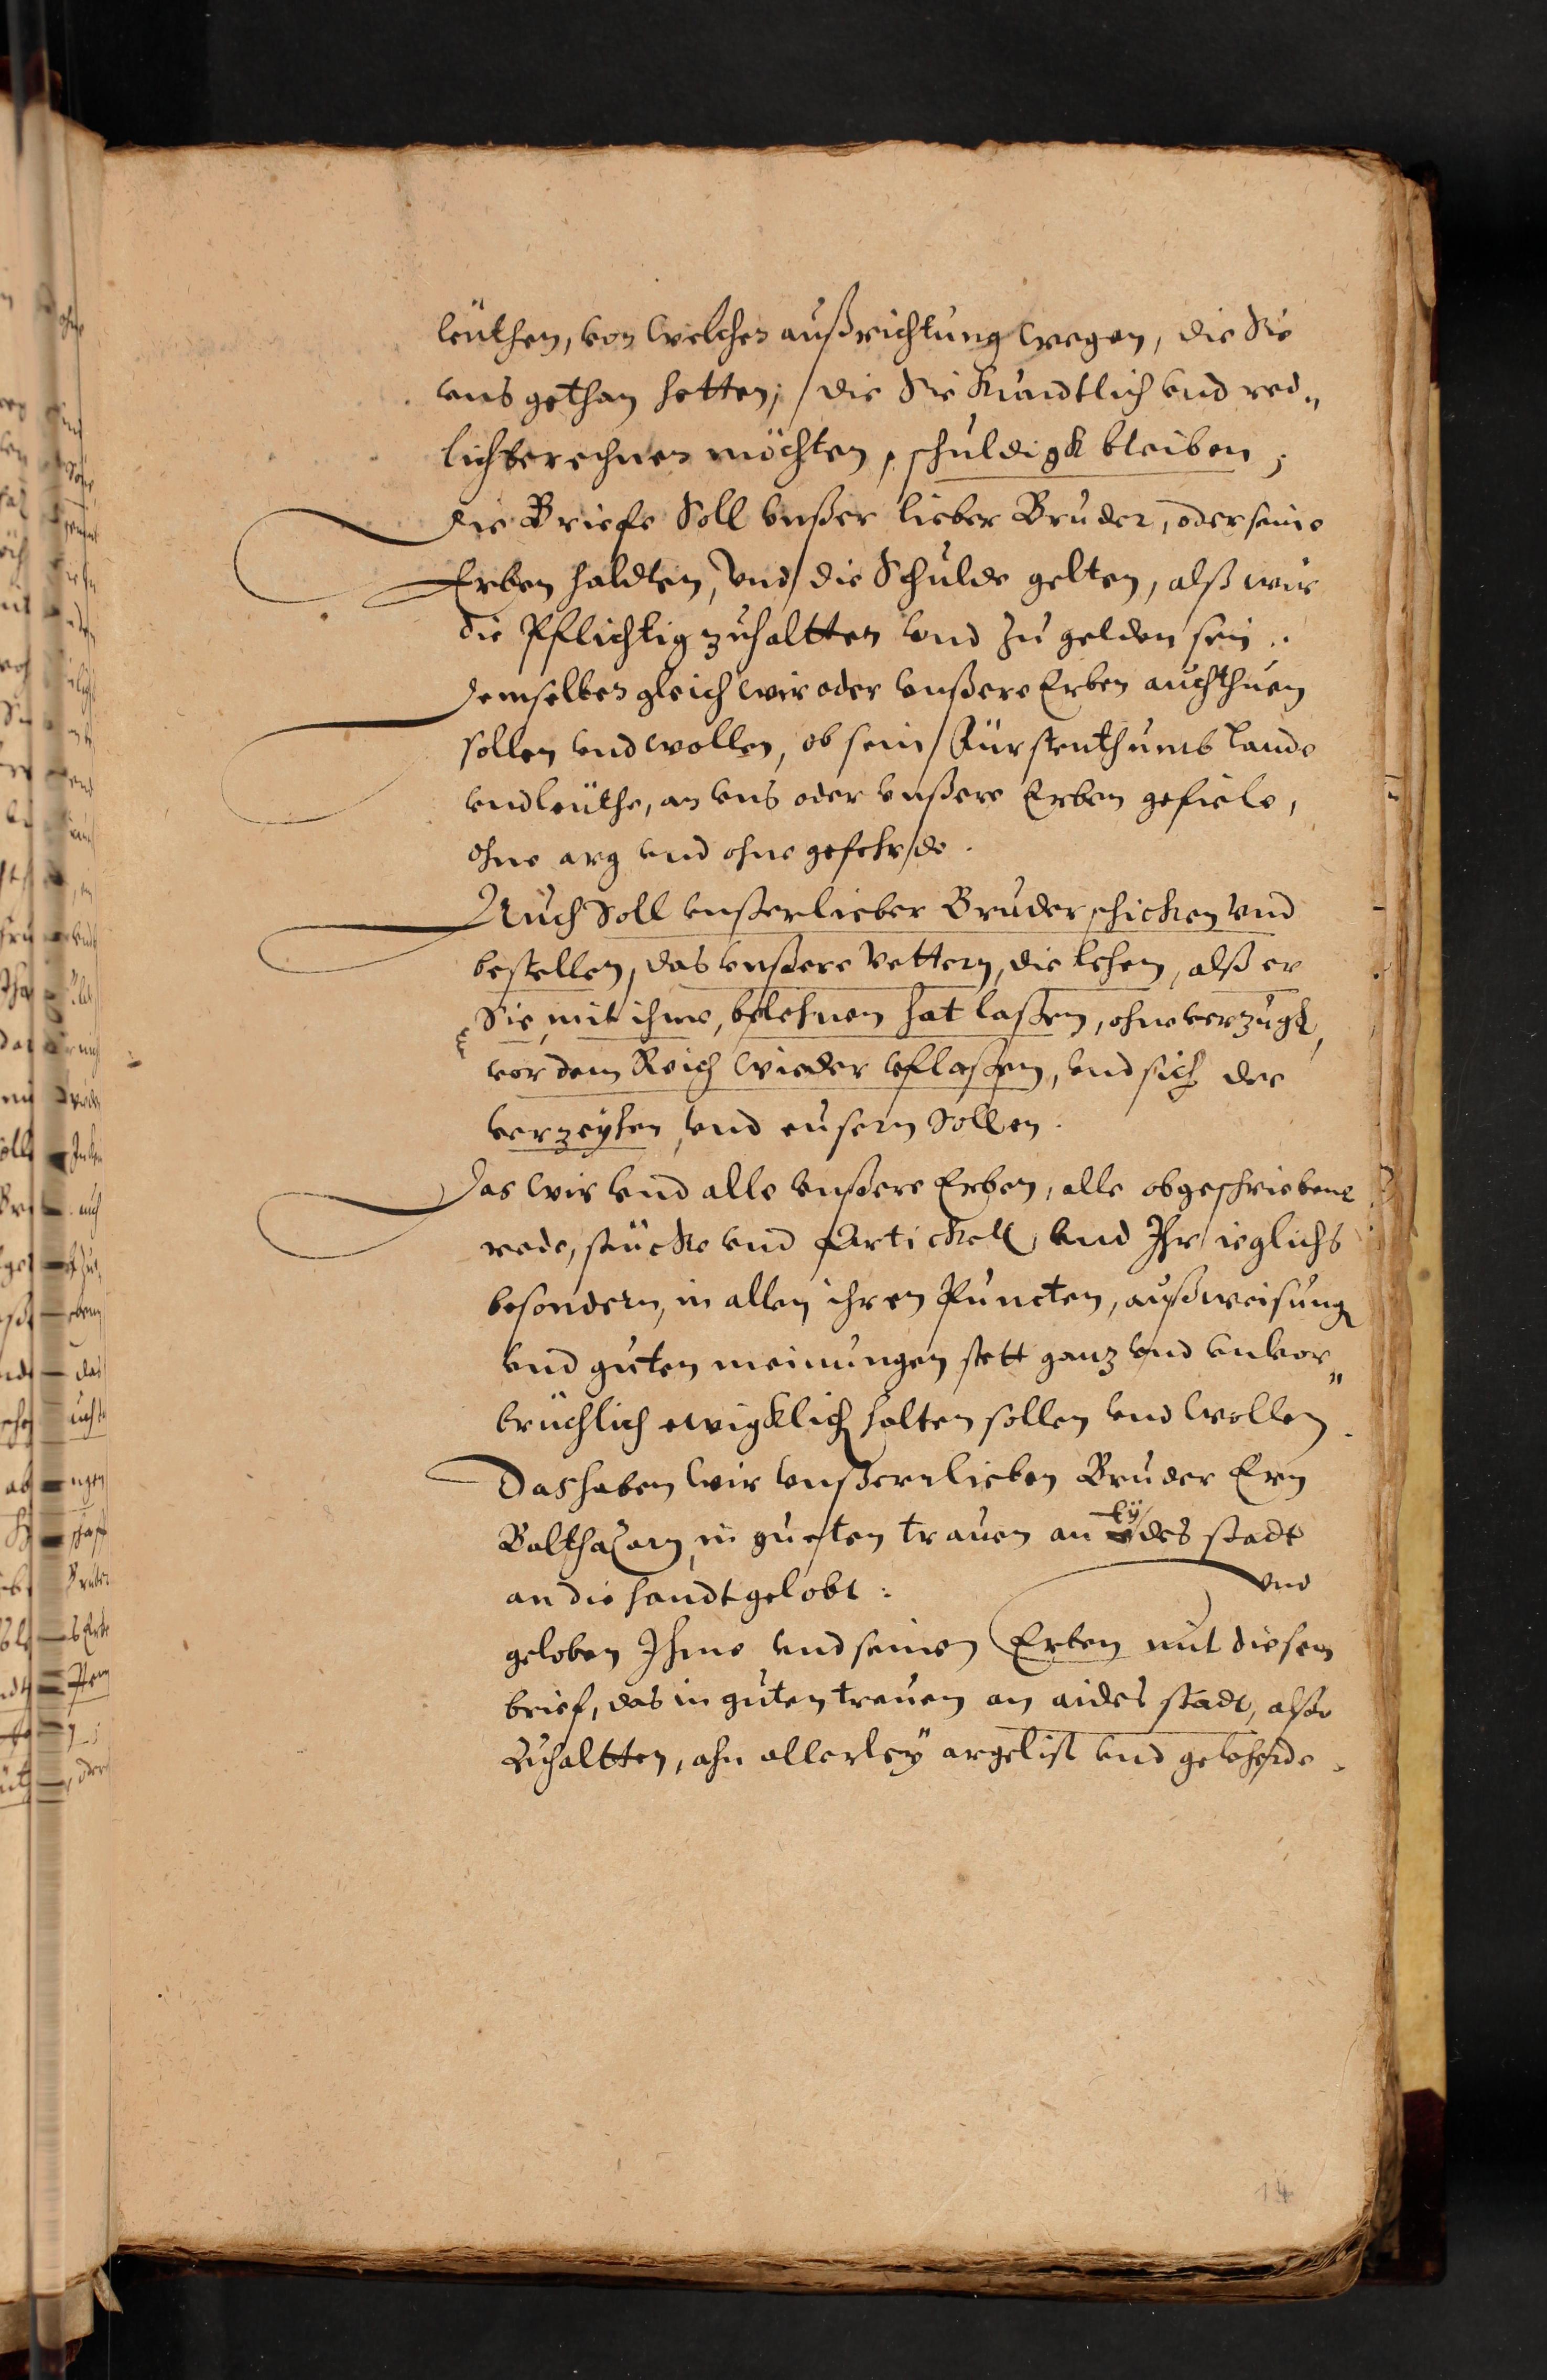 leüthen, von welcher außrichtung wegen, die Sie
vns gethan hetten, die Sie Kundtlich vnd red„
lich berechnen möchten, schuldigk bleiben;
die Briefe Soll vnßer lieber Bruder, oder seine
Erben haldten, Vnd die Schulde gelten, alß wir
die Pflichtig zuhaltten vnd zu gelden sein.
demselben gleich wir oder vnßere Erben auch thuen
sollen vnd wollen, ob sein Fürstenthumb Lande
vnd leüthe, an vns oder vnßere Erben gefiele,
ohne arg vnd ohne gefehrde.
Auch Soll vnßer lieber Bruder schicken vnd
bestellen, das vnßere Vettern, die lehen, alß er
Sie, mit ihme, belehnen hat laßen, ohne verzugk,
vor dem Reich wieder vflaßen, vnd sich der
verzeyhen, vnd eusern Sollen.
das wir vnd alle vnßere Erben, alle obgeschriebene
rede, stücke vnd Artickell, vnd Ihr ieglichs
besondern, in allen ihren Puncten, außweisung
vnd guten meinungen stett ganz vnd vnvor„
brüchlich ewigklich halten sollen vnd wollen.
Das haben wir vnßern lieben Bruder Ern
Balthasarn, in guten trauen an Eydes stadt
an die handt gelobt: vnd
geloben Ihme vnd seinen Erben mit diesem
brief, das in guten treuen an aides stadt, also
Zuhaltten, ahn allerley argelist vnd geveherde.
14